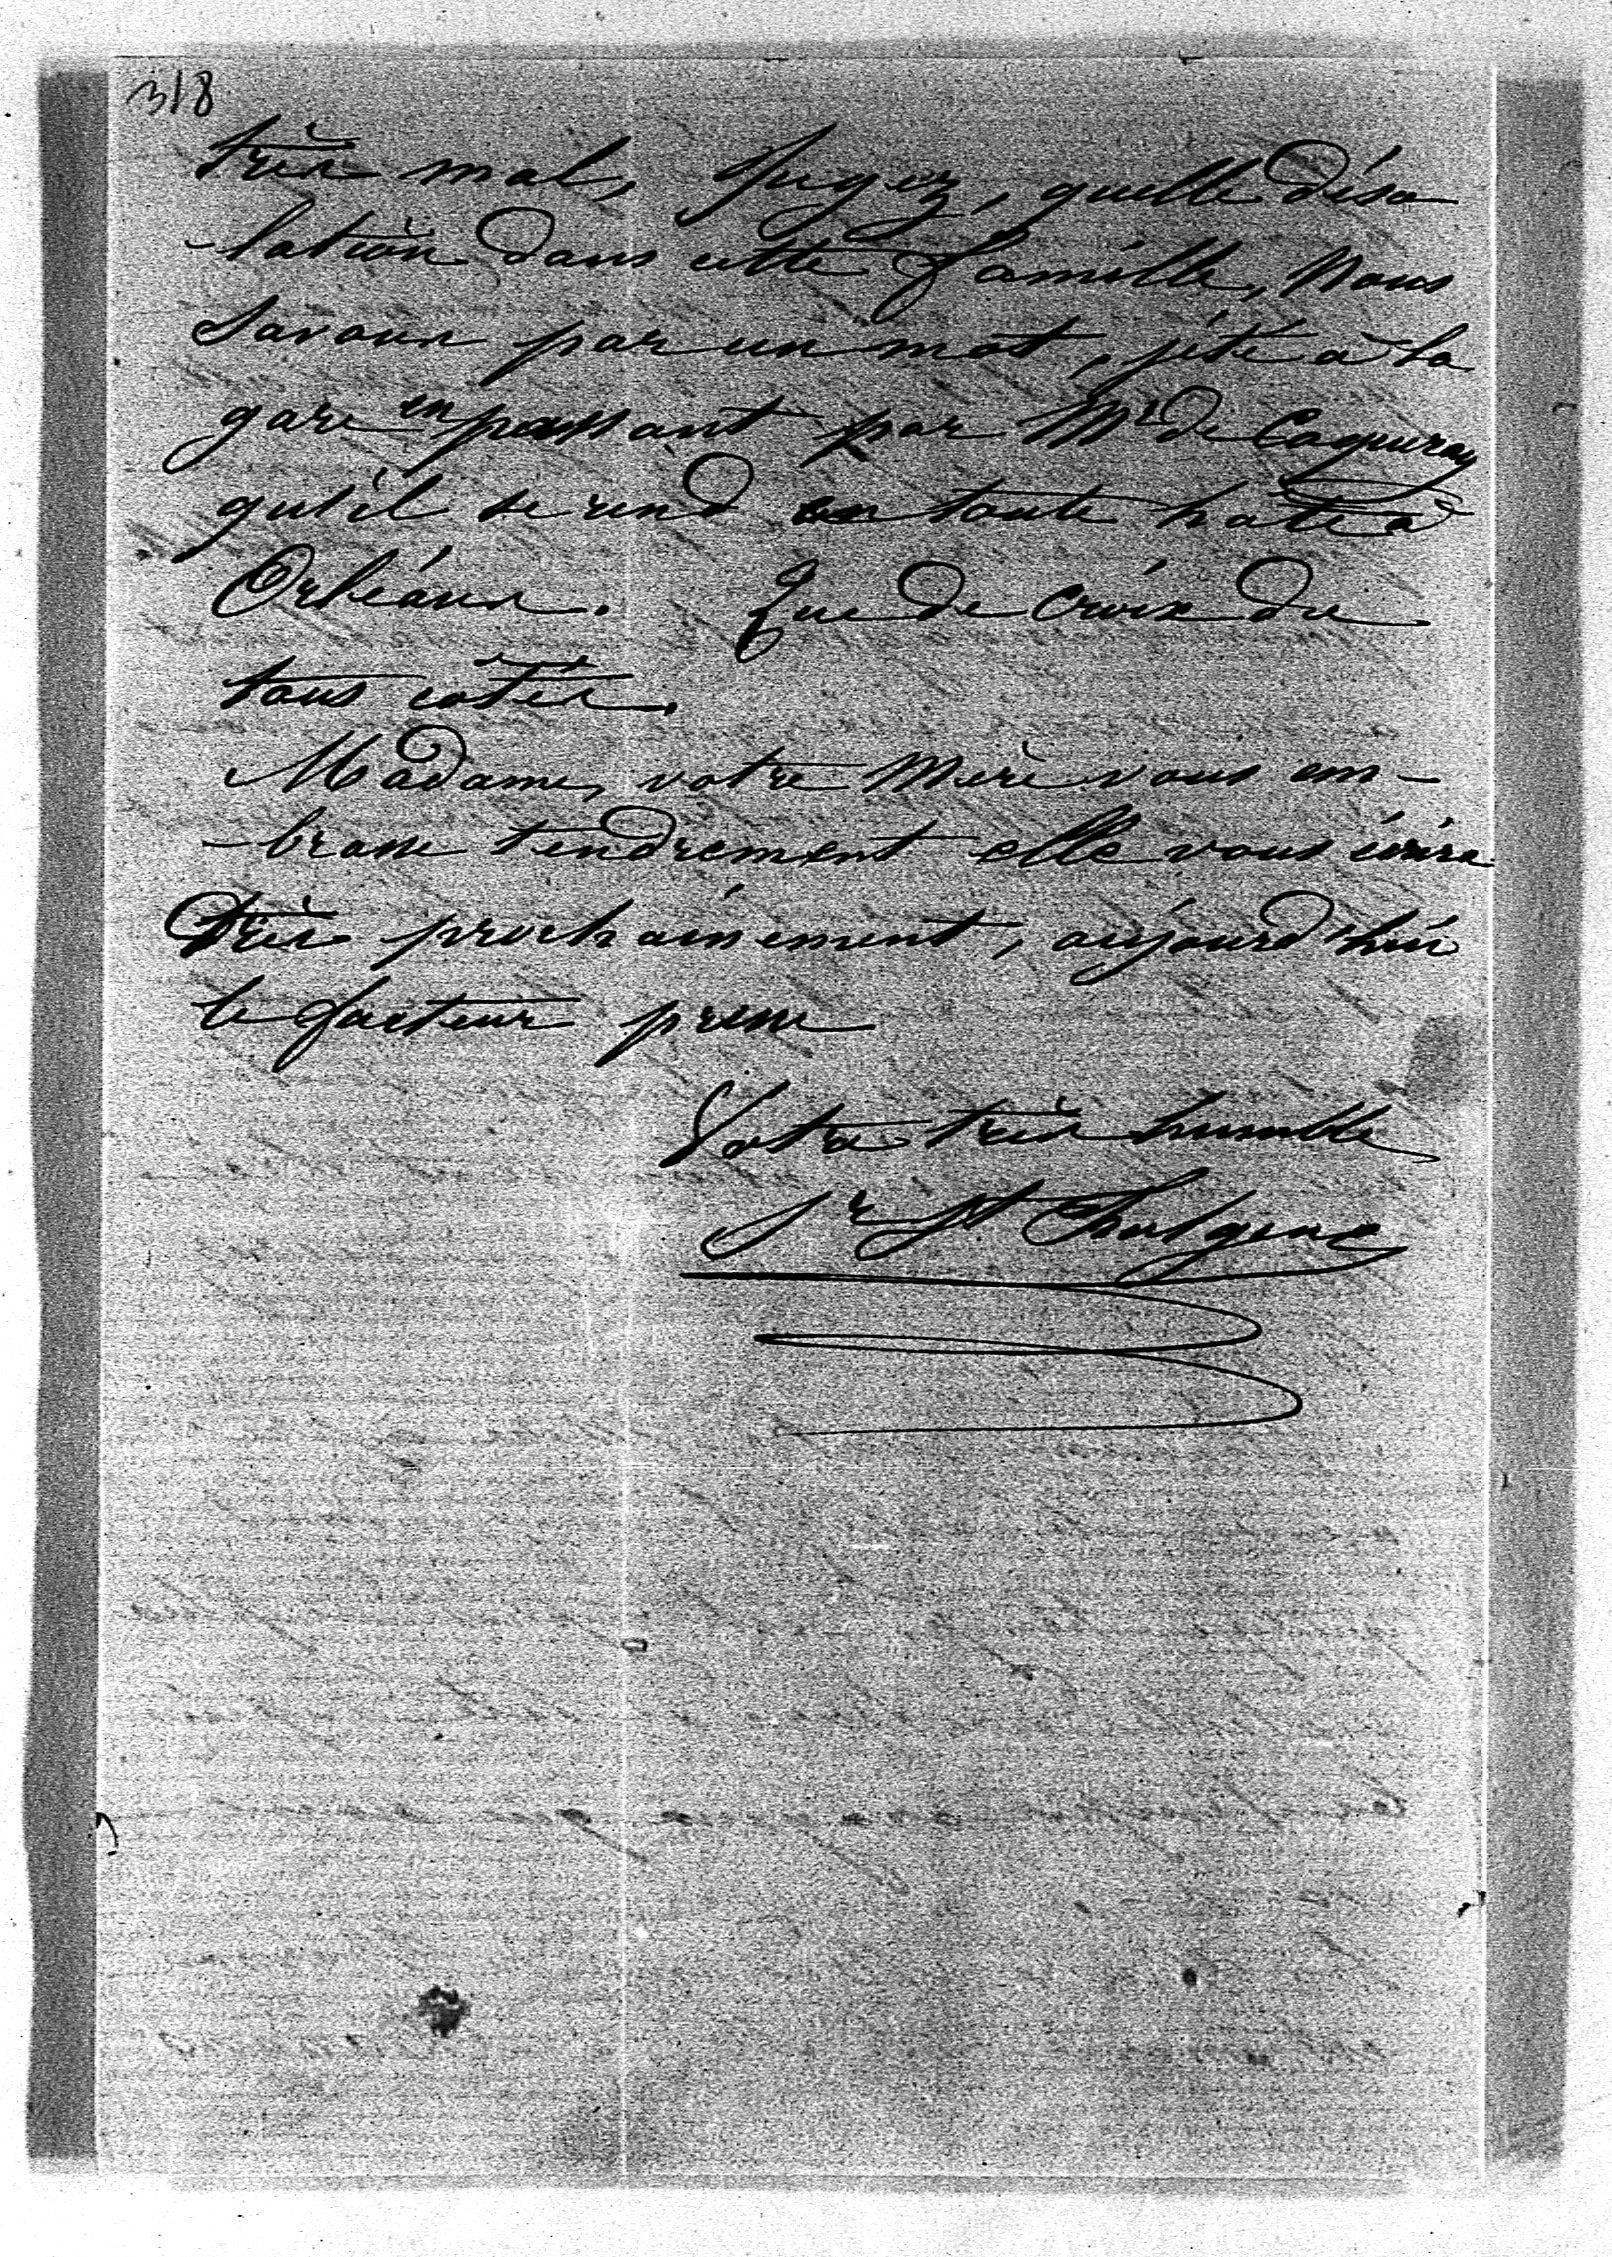 318
très mal, Jugez, quelle déso
-lation dans cette famille, Nous
savons par un mot, jété à la
gare en passant par Mr de Caqueray
qu'il se rend en toute hate à
Orléans. Que de Croix de
tous côtés.
Madame, votre Mère vous em-
-brasse tendrement elle vous écrira
très prochainement, aujourd'hui
le facteur presse
Votre très humble
Sr St